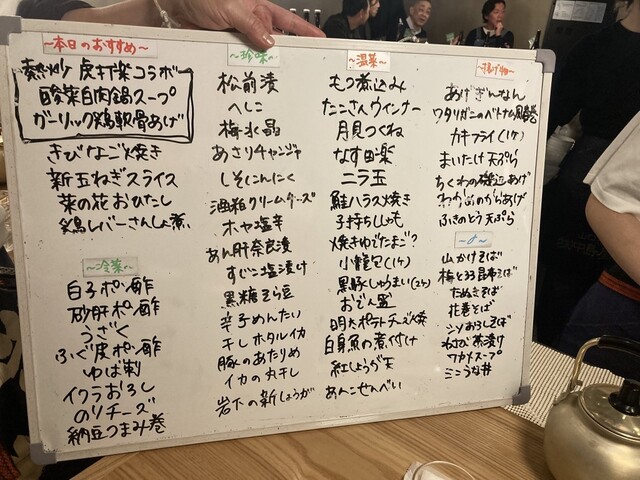 〜本日のおすすめ〜
熱炒 虎打楽コラボ
酸菜白肉鍋スープ
ガーリック鶏軟骨あげ
きびなご焼き
新玉ねぎスライス
菜の花おひたし
鶏レバーさんしょ煮
〜冷菜〜
白子ポン酢
砂肝ポン酢
うざく
ふぐ皮ポン酢
ゆば刺
イクラおろし
のりチーズ
納豆つまみ巻
〜珍味〜
松前漬
へしこ
梅水晶
あさりチャンジャ
しそにんにく
酒粕クリームチーズ
ホヤ塩辛
あん肝奈良漬
すじこ塩漬け
黒糖そら豆
辛子めんたい
干しホタルイカ
豚のあたりめ
イカの丸干し
岩下の新しょうが
〜温菜〜
もつ煮込み
たこさんウィンナー
月見つくね
なす田楽
ニラ玉
鮭ハラス焼き
子持ちししゃも
焼きゆでたまご?
小籠包(1ケ)
黒豚しゅまい(2ケ)
おでん
明太ポテトチーズ焼
白身魚の煮付け
紅しょうが天
あんこせんべい
〜揚げ物〜
あげぎんなん
ワタリガニのベトナム風春巻
カキフライ(1ケ)
まいたけ天ぷら
ちくわの磯辺あげ
わかめのからあげ
ふきのとう天ぷら
〜〆〜
山かけそば
梅とろろ昆布そば
たぬきそば
花巻そば
シソおろしそば
わさび茶漬け
ワカメスープ
ミニうな丼